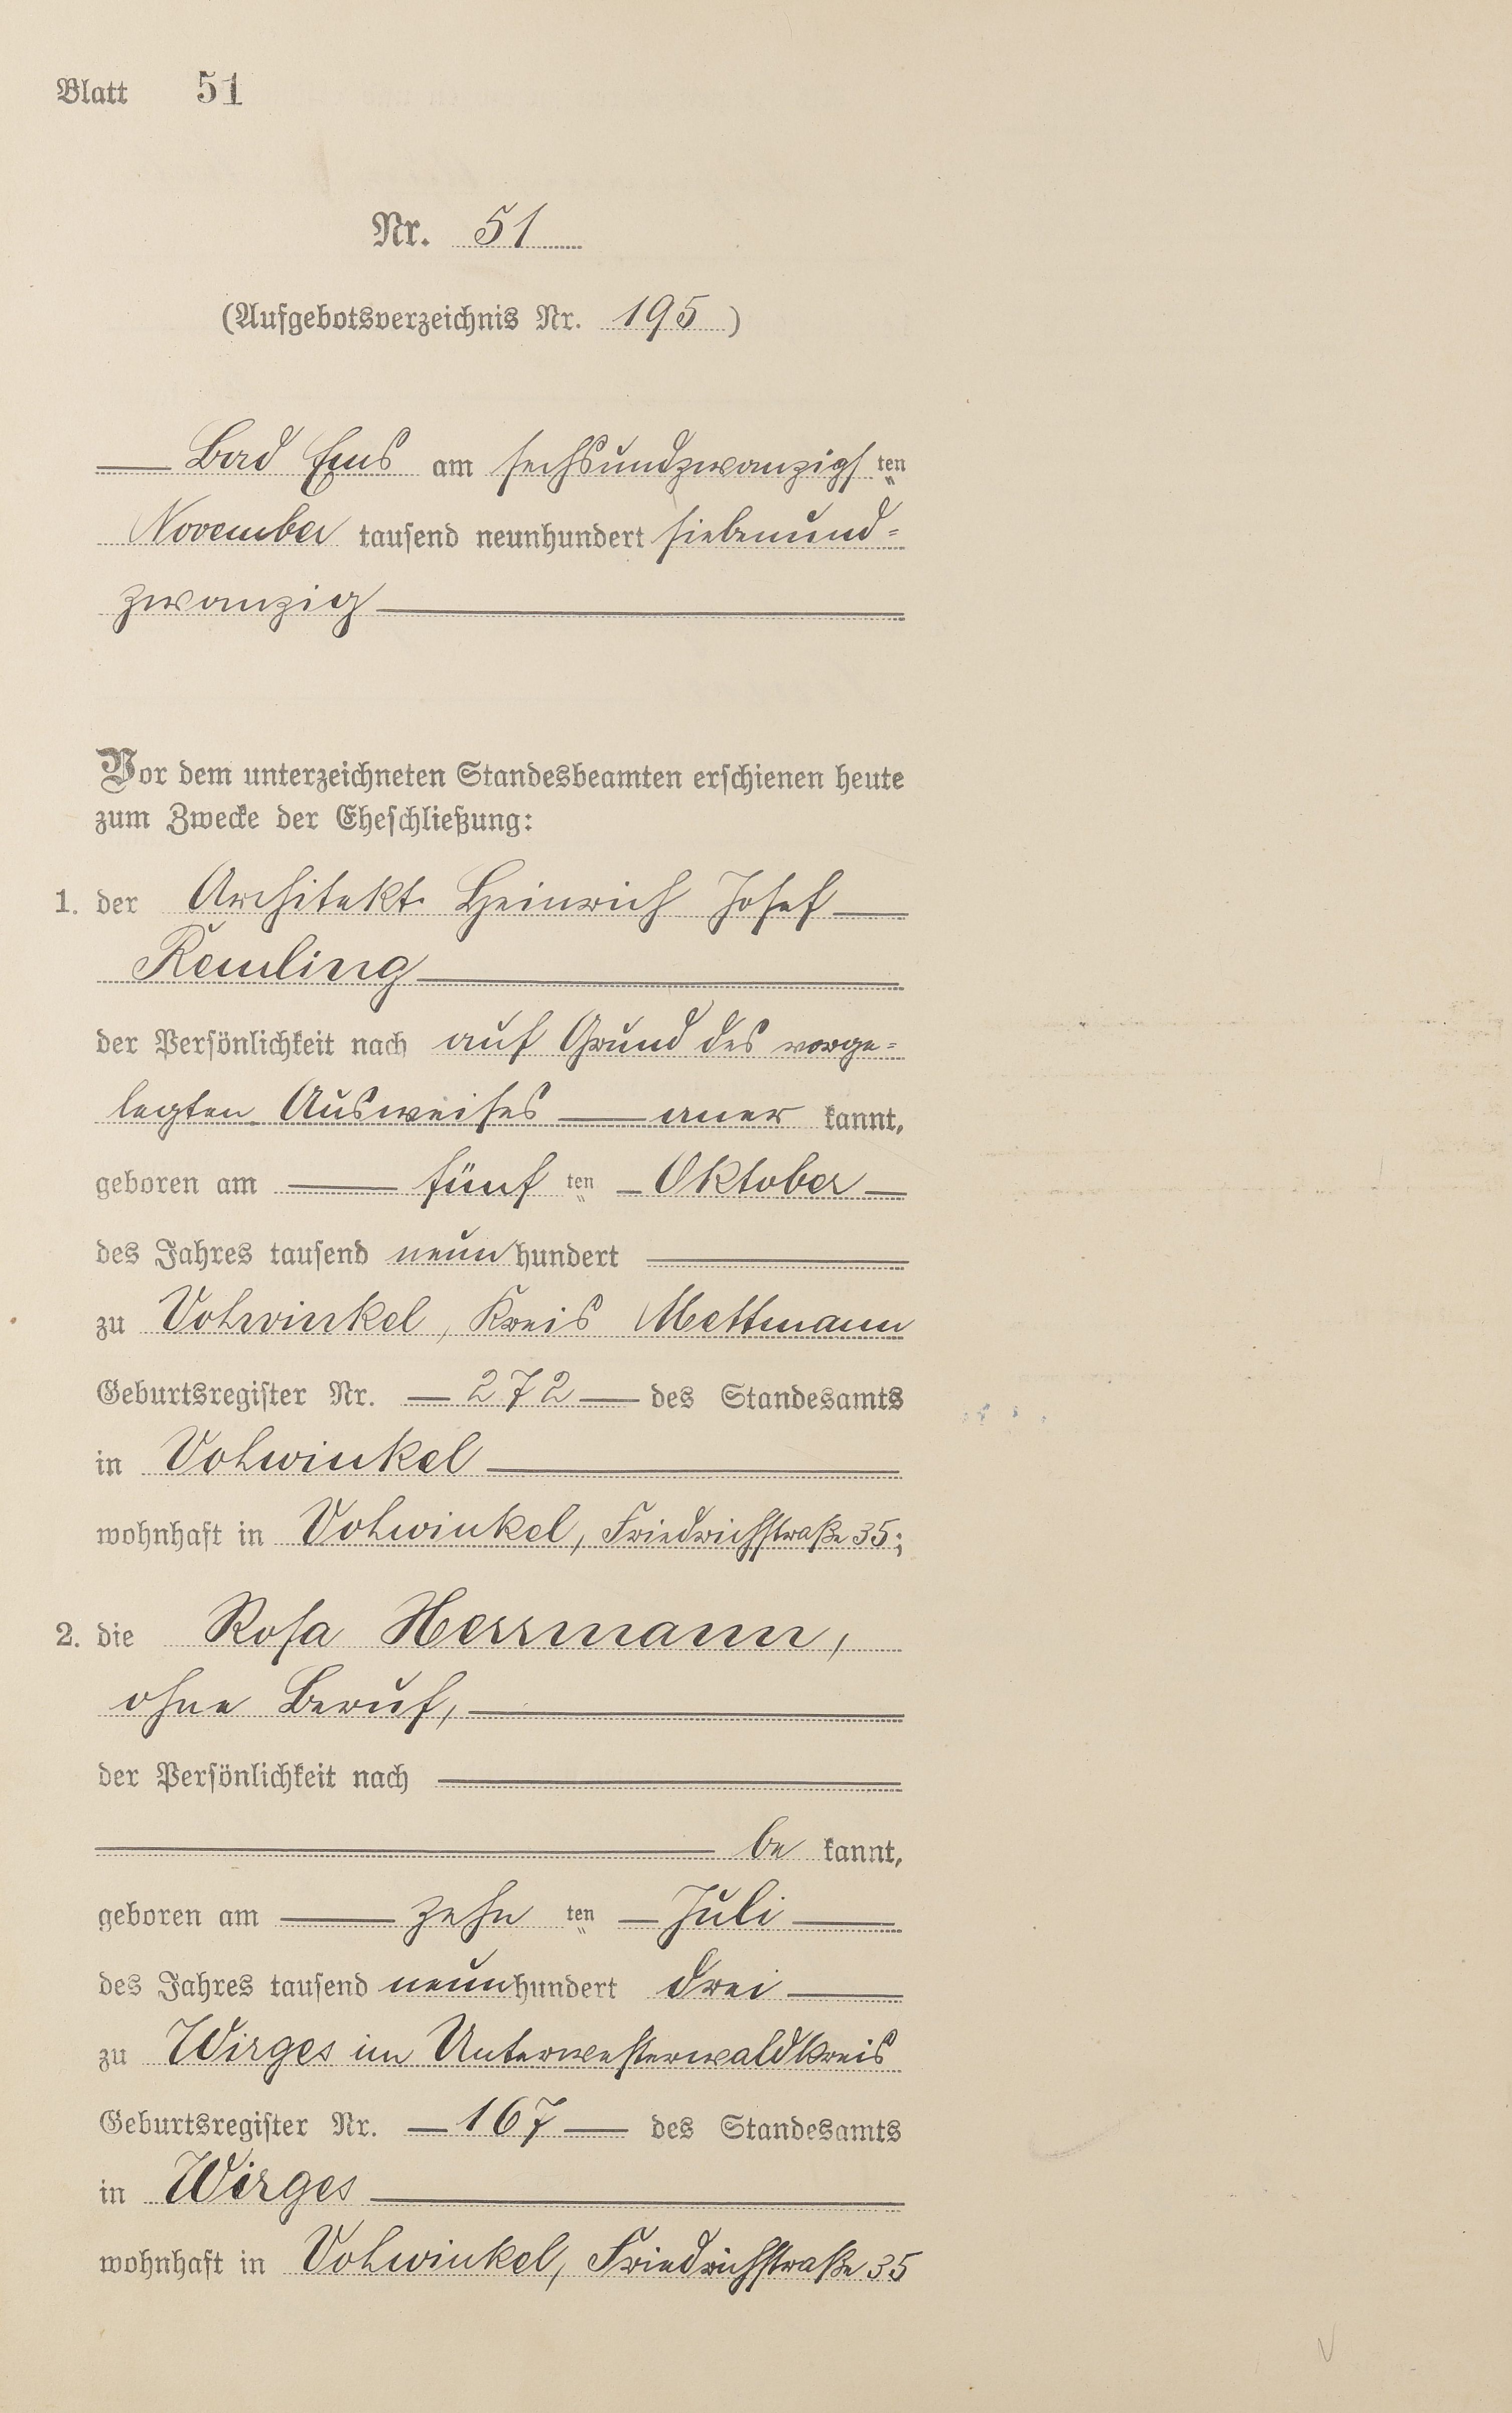 Blatt 51
Nr. 51
(Aufgebotsverzeichnis Nr. 195)
Bad Ems am sechsundzwanzigsten
November tausend neunhundert siebenund-
zwanzig
Vor dem unterzeichneten Standesbeamten erschienen heute
zum Zwecke der Eheschließung:
1. der Architekt Heinrich Josef
Remling
der Persönlichkeit nach auf Grund des vorge-
legten Ausweises anerkannt,
geboren am fünften Oktober
des Jahres tausend neunhundert
zu Vohwinkel, Kreis Mettmann
Geburtsregister Nr. 272 des Standesamts
in Vohwinkel
wohnhaft in Vohwinkel, Friedrichstraße 35;
2. die Rosa Herrmann,
ohne Beruf,
der Persönlichkeit nach
bekannt,
geboren am zehnten Juli
des Jahres tausend neunhundert drei
zu Wirges im Unterwesterwaldkreis
Geburtsregister Nr. 167 des Standesamts
in Wirges
wohnhaft in Vohwinkel, Friedrichstraße 35